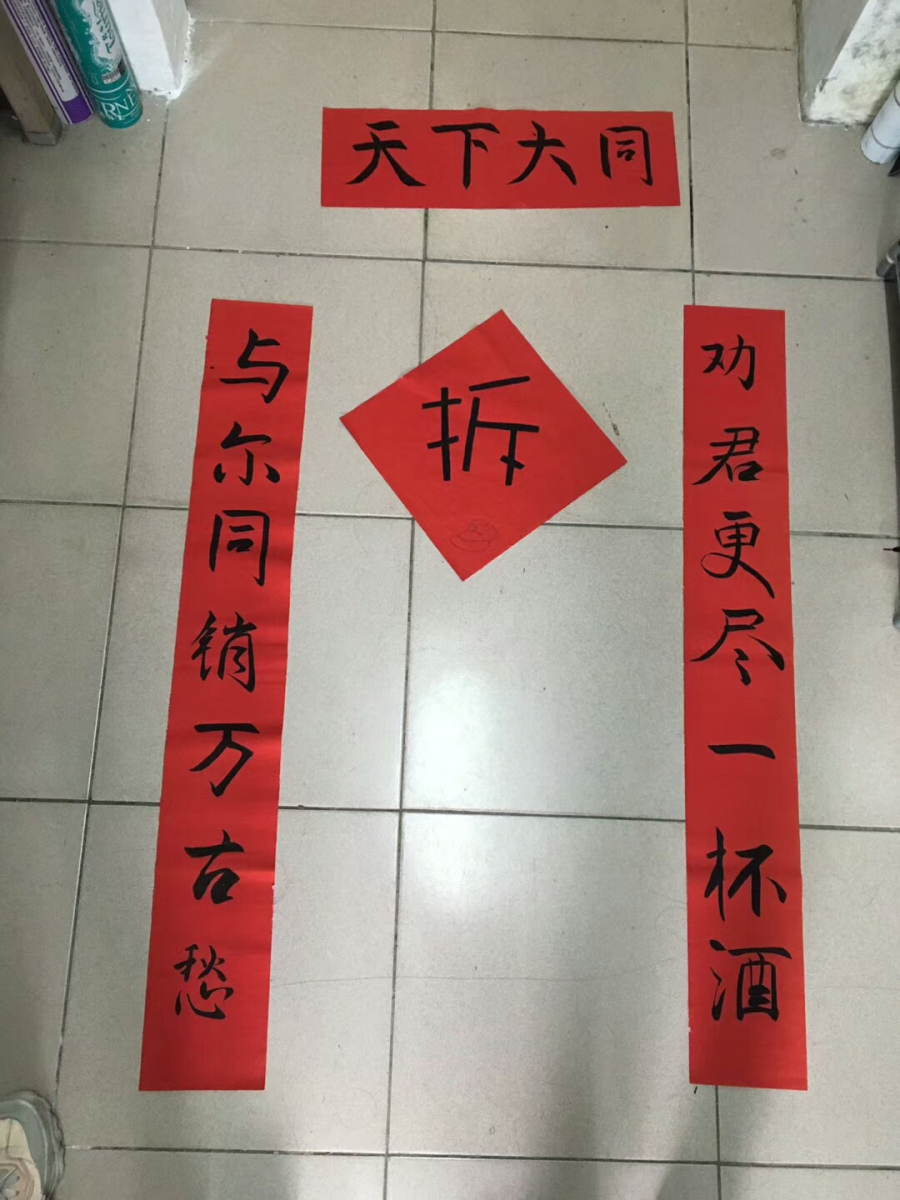 天下大同
劝君更尽一杯酒
与尔同销万古愁
拆